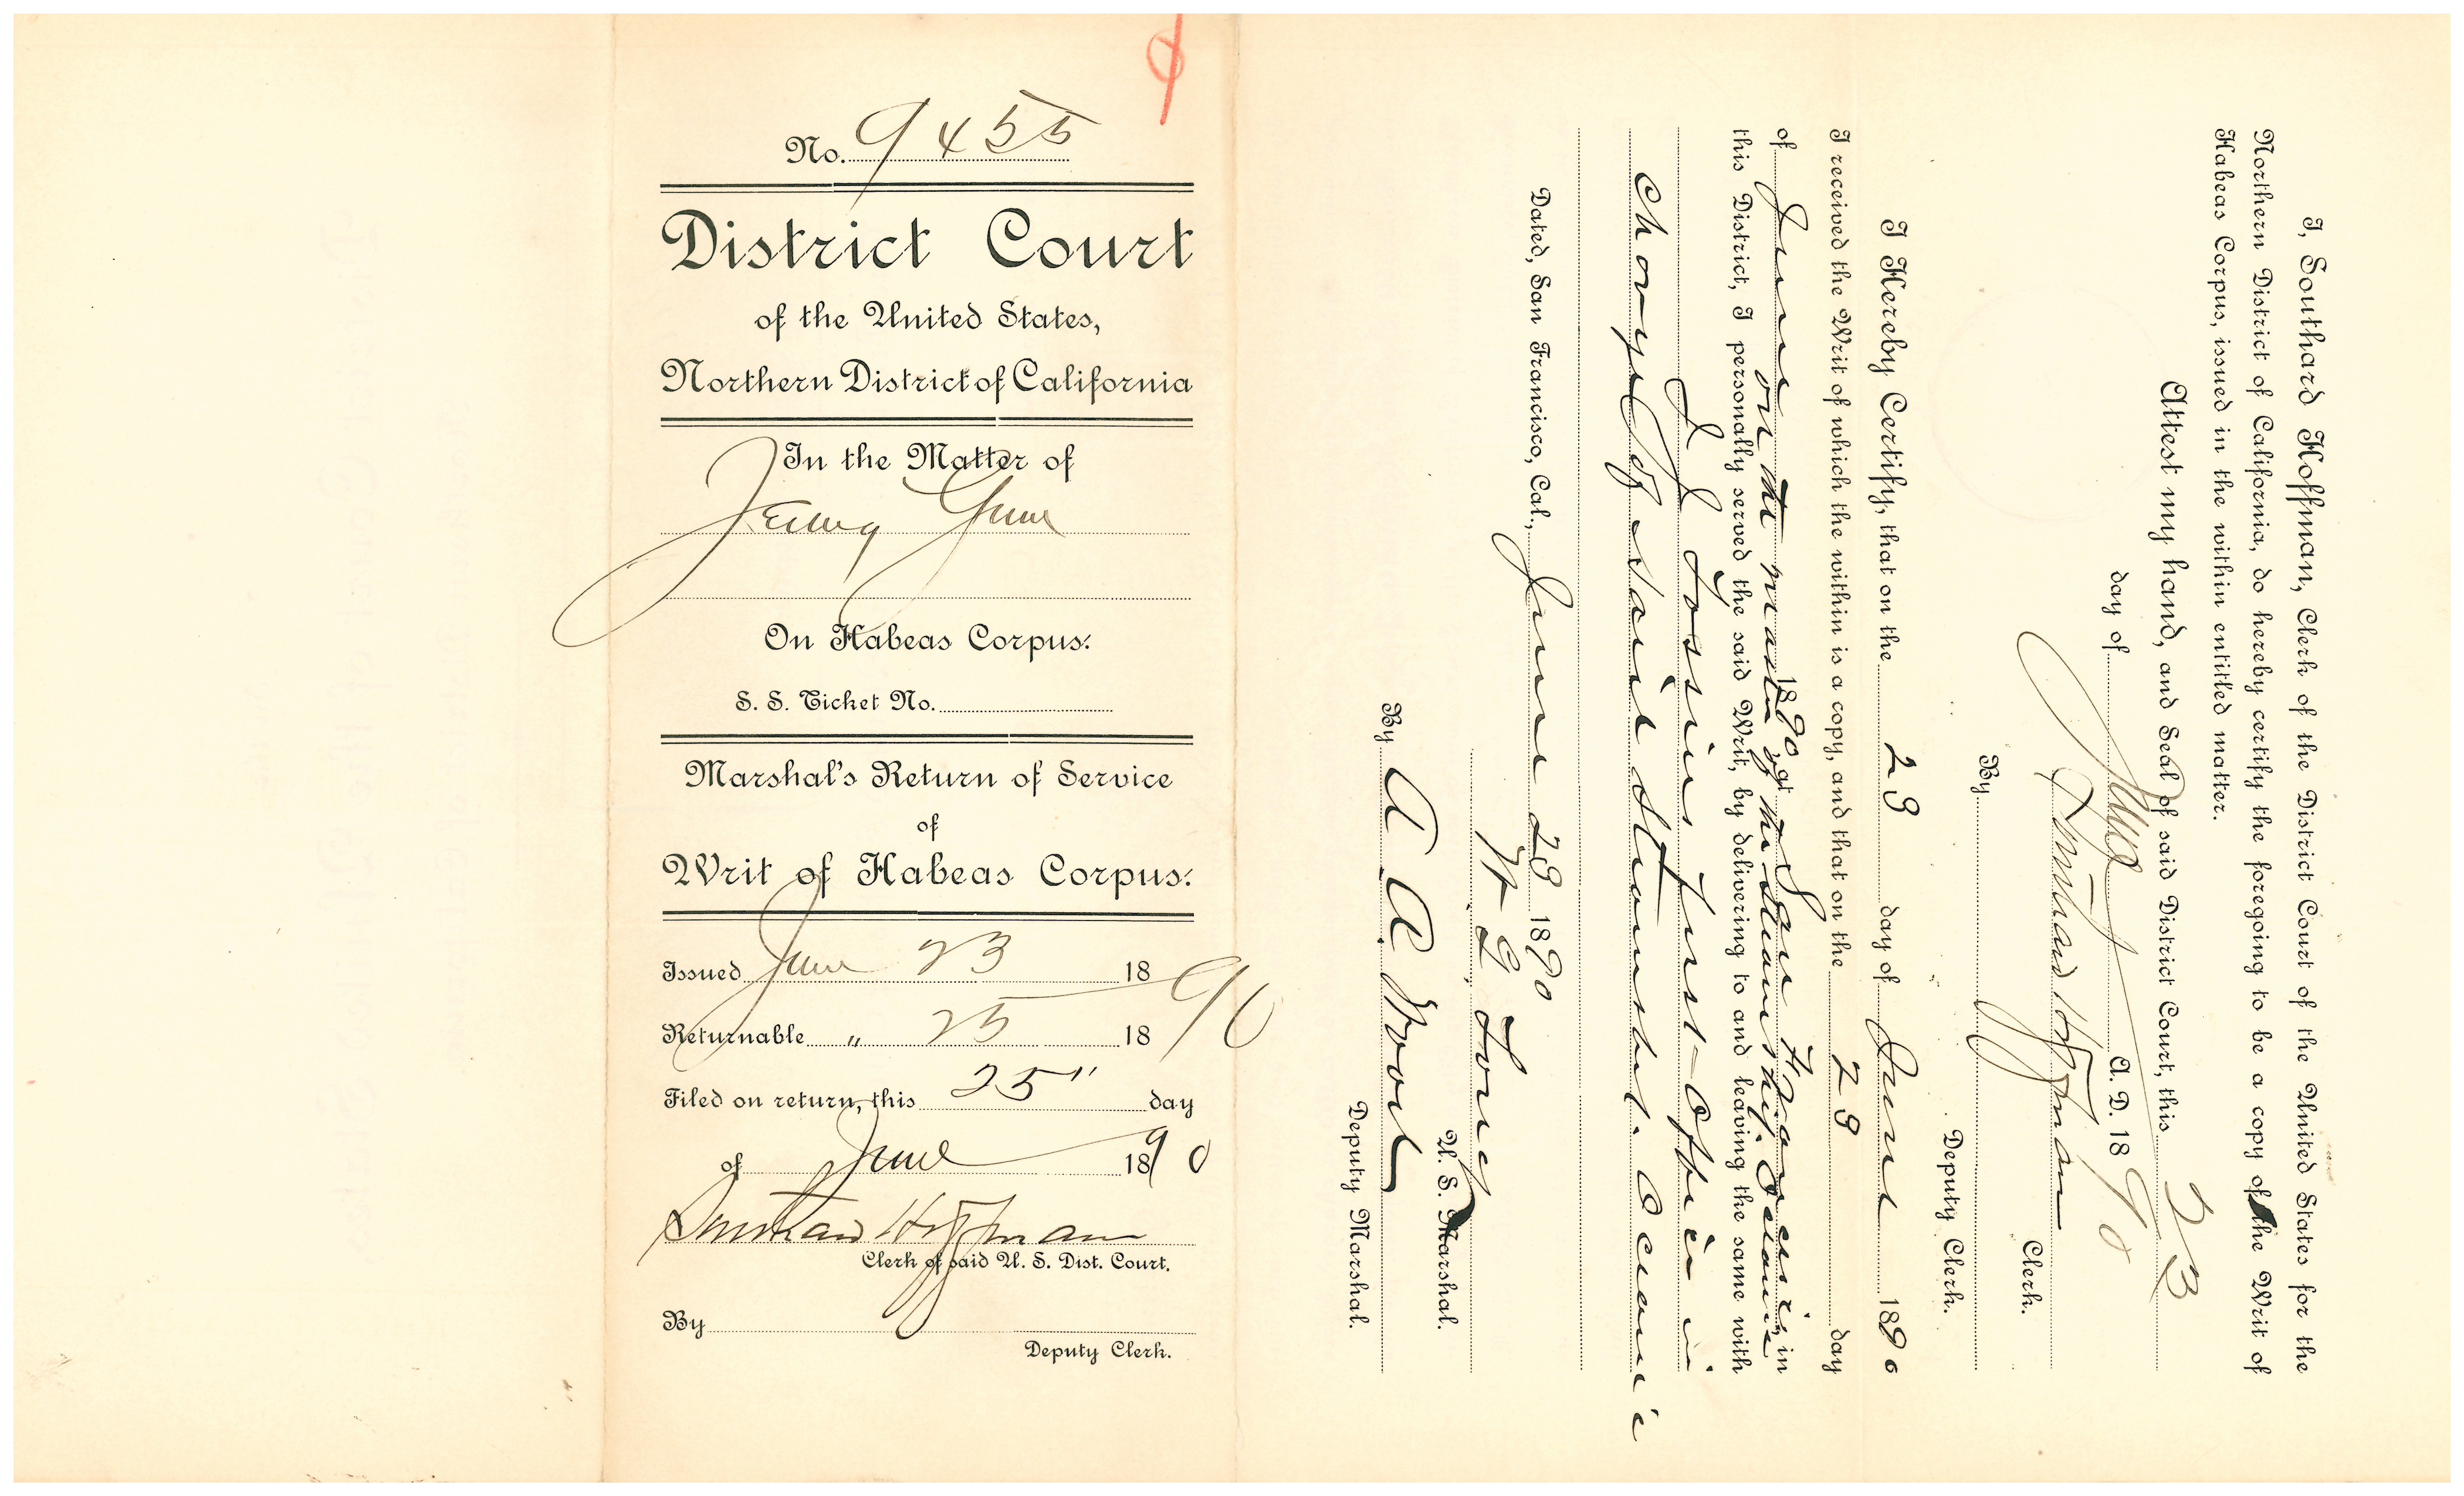 No. 9455
District Court
of the United States,
Northern District of California
In the Matter of
Jeung June
On Habeas Corpus.
S. S. Ticket No.
Marshal's Return of Service
of
Writ of Habeas Corpus.
Issued June 23 1890
Returnable " 25 18
Filed on return, this 25" day
of June 1890
Southard Hoffman
Clerk of said U. S. Dist. Court.
By
Deputy Clerk.
I, Southard Hoffman, Clerk of the District Court of the United States for the
Northern District of California, do hereby certify the foregoing to be a copy of the Writ of
Habeas Corpus, issued in the within entitled matter.
Attest my hand, and Seal of said District Court, this 23
day of June A. D. 1890
Southard Hoffman
Clerk.
By
Deputy Clerk.
I Hereby Certify, that on the 23 day of June 1890
I received the Writ of which the within is a copy, and that on the 23 day
of June 1890, at San Francisco in
on the master of the Steamship Oceanic
this District, I personally served the said Writ, by delivering to and leaving the same with
J J first Officer in
charge of said Steamship Oceanic
Dated, San Francisco, Cal., June 23 1890
W G Long
U. S. Marshal.
By A A Wood
Deputy Marshal.